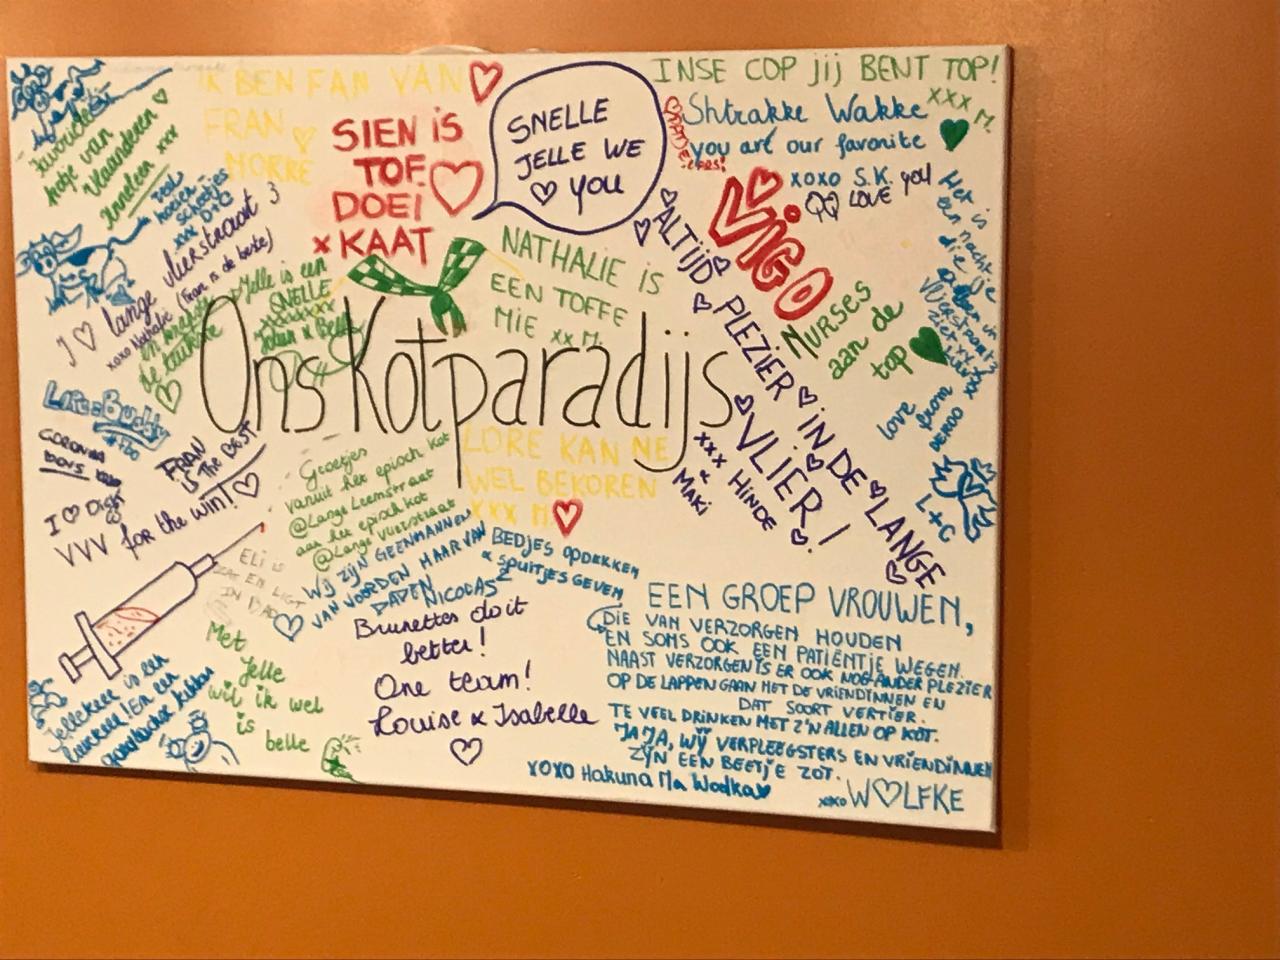 IK BEN FAN VAN
FRAN
MORRE
SIEN iS
TOF
DOEI
x KAAT
SNELLE
JELLE WE
♡ YOU
INSE COP Jij BENT TOP!
XXX M.
Shtrakke Wakke
you are our favorite
xoxo S.K.
QQ LOVE you
ViGO
NURSES
aan de
top
Favoriete
kotje van
Vlaanderen
Anneleen xxx
I ♡ lange vlierstraat 3
xoxo Nathalie (Fran is de beste)
Jelle is een
SNELLE
NATHALIE IS
EEN TOFFE
MIE xx M.
ALTIJD PLEZIER IN DE LANGE
VLIER!
xxx HINDE
&
MAKI
Ons Kotparadijs
love from
L+C
Lore = Buddy
CORONNA
FRAN
IS THE BEST
I ♡
VVV for the win!
Groetjes
vanuit het episch kot
@Lange Leemstraat
aan het episch kot
@Lange Vlierstraat
LORE KAN NE
WEL BEKOREN
XXX M.
WIJ ZIJN GEEN MANNEN
VAN WOORDEN MAAR VAN
DADEN
NICOLAS
BEDJES OPDEKKEN
& SPUITJES GEVEN
ELI is
IN BAD
Brunettes do it
better!
One team!
Louise & Isabelle
Met
Jelle
wil ik wel
is belle
Jellekee is een
EEN GROEP VROUWEN,
DIE VAN VERZORGEN HOUDEN
EN SOMS OOK EEN PATIËNTJE WEGEN.
NAAST VERZORGEN IS ER OOK NOG ANDER PLEZIER
OP DE LAPPEN GAAN MET DE VRIENDINNEN EN
DAT SOORT VERTIER.
TE VEEL DRINKEN MET Z'N ALLEN OP KOT.
JAJA, WIJ VERPLEEGSTERS EN VRIENDINNEN
ZIJN EEN BEETJE ZOT.
XOXO Hakuna Ma Wodka
xoxo W♡LFKE